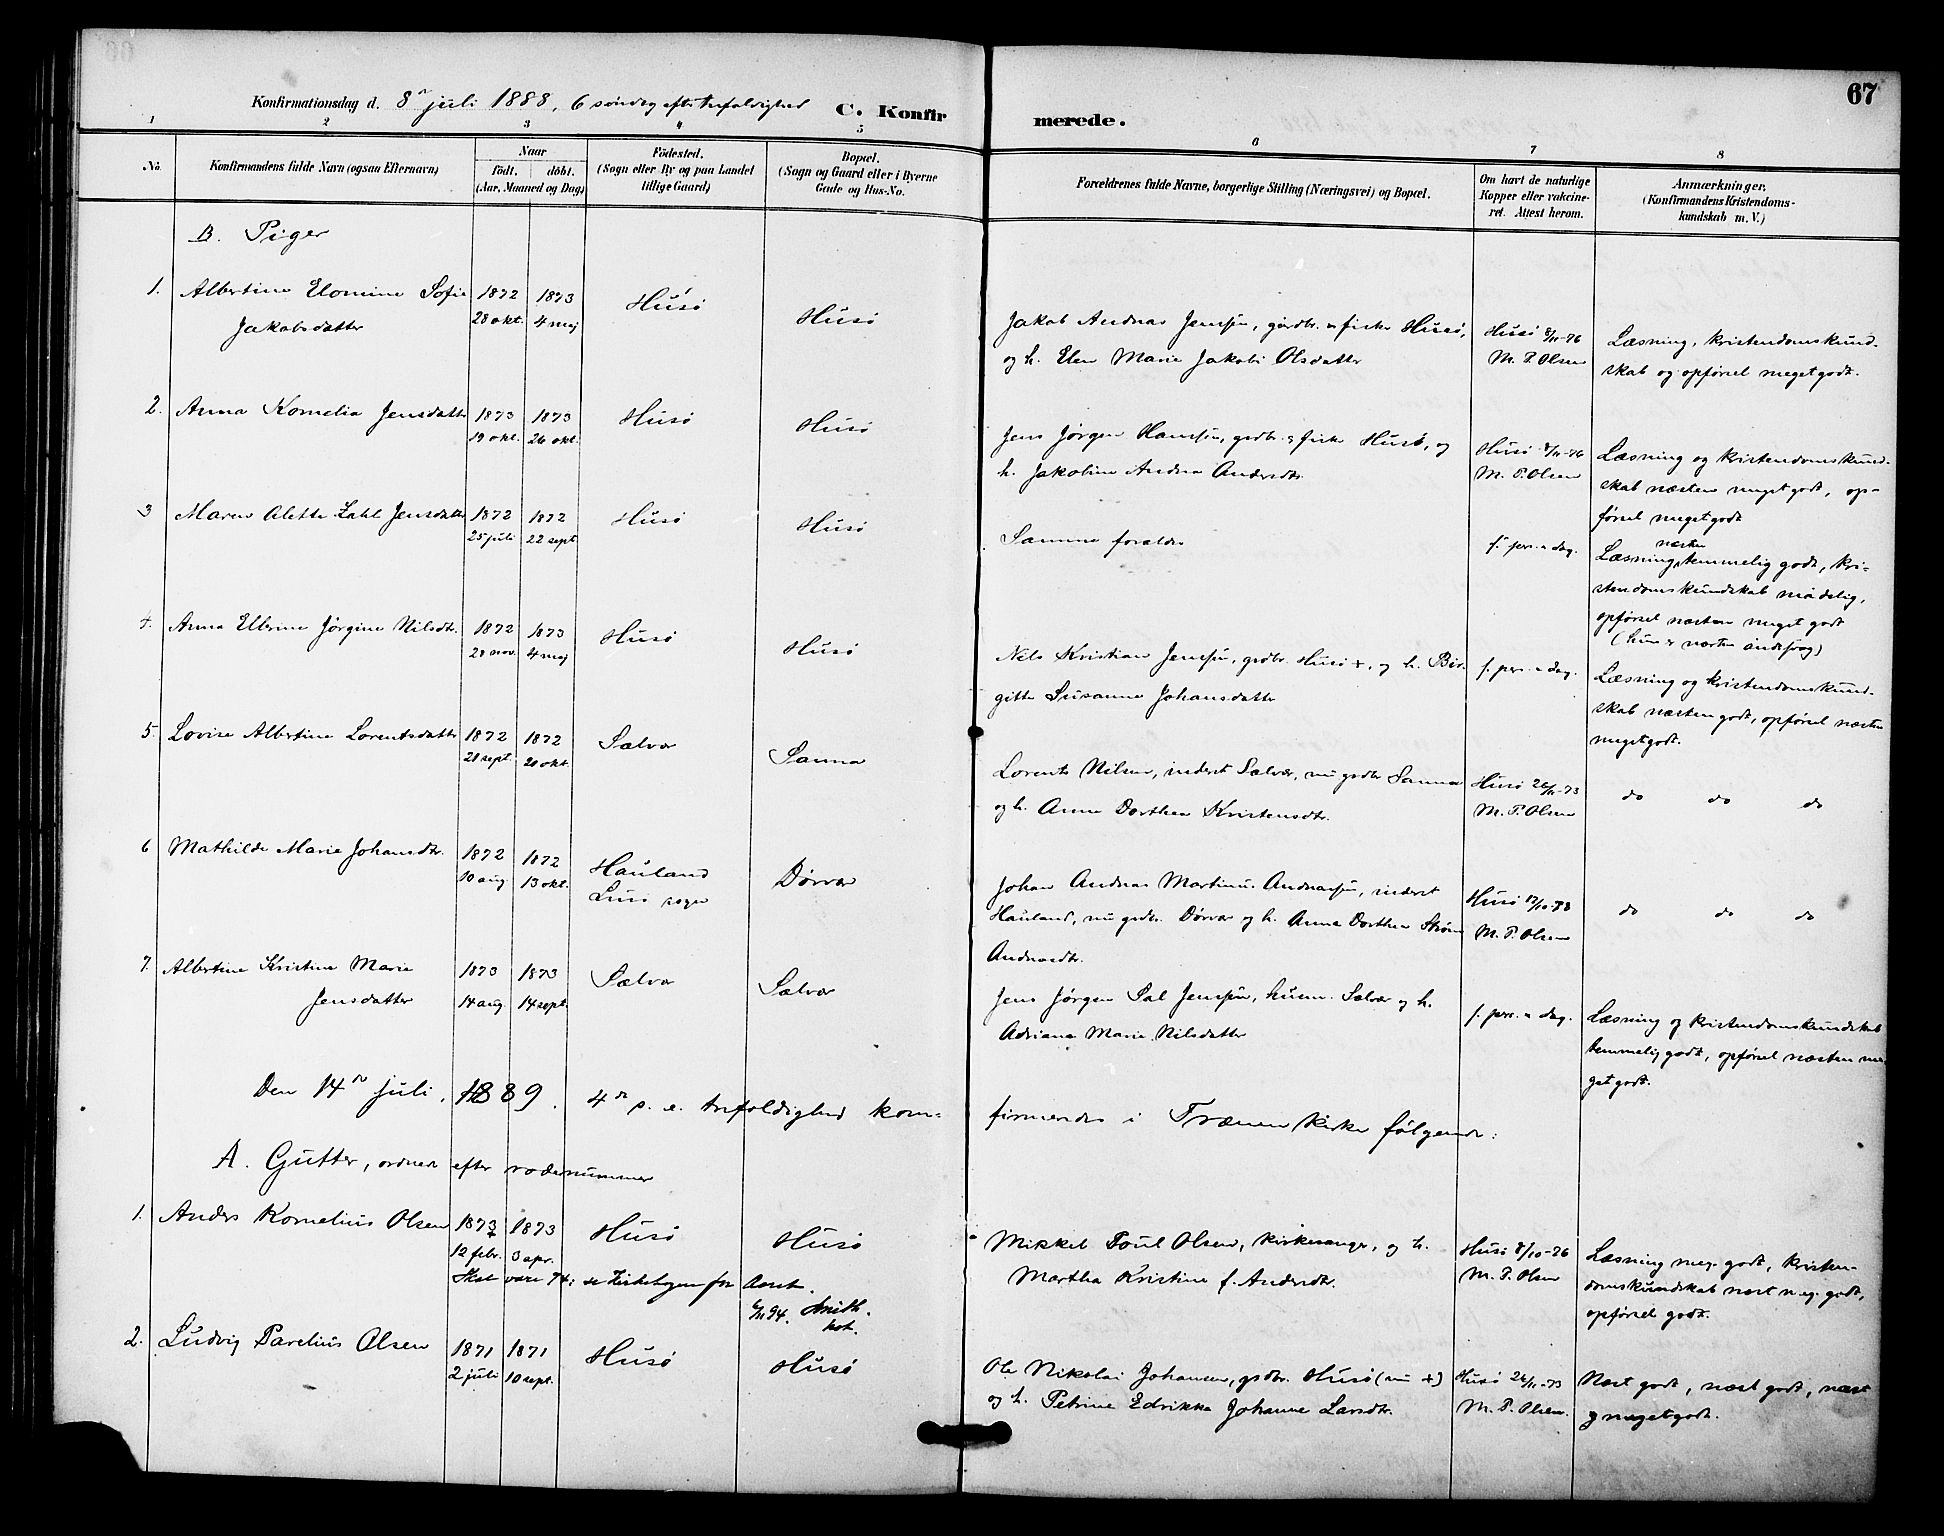 67
Konfirmationsdag d. 8n juli 1888, 6 søndag efter trefoldighed
C. Konfirmerede.
1 2 3 4 5 6 7 8
No. Konfirmandens fulde Navn (ogsaa Efternavn)
Naar födt. döbt. (Aar, Maaned og Dag)
Födested. (Sogn eller By og paa Landet tillige Gaard)
Bopæl. (Sogn og Gaard eller i Byerne Gade og Hus-No.
Forældrenes fulde Navne, borgerlige Stilling (Næringsvei) og Bopæl.
Om havt de naturlige Kopper eller vakcineret. Attest herom.
Anmærkninger. (Konfirmandens Kristendomskundskab m. V.)
B. Piger
1. Albertine Elomine Sofie Jakobsdatter
1872 28 okt.
1873 4 maj
Husö
Husö
Jakob Andreas Jenssøn, gårdbr. & fisker Husö,
og h. Elen Marie Jakobi Olsdatter
Husö 8/11-76
M. P. Olsen
Læsning, kristendomskund-
skab og opførsel meget godt.
2. Anna Kornelia Jensdatter
1873 19 okt.
1873 26 okt.
Husö
Husö
Jens Jørgen Hanssøn, grdbr. & fisker Husö, og
h. Jakobine Andrea Andersdtr.
Husö 8/11-76
M. P. Olsen
Læsning og kristendomskund-
skab næsten meget godt, op-
førsel meget godt
3 Maren Alette Zahl Jensdatter
1872 25 juli
1872 22 sept
Husö
Husö
Samme forældre
f. pers. & dag.
Læsning næsten temmelig godt, kri-
stendomskundskab mådelig,
opførsel næsten meget godt
(hun er næsten åndssvag)
4. Anna Elbrine Jørgine Nilsdtr.
1872 28 nov.
1873 4 maj
Husö
Husö
Nils Kristian Jenssøn, grdbr. Husö +, og h. Bir-
gitte Susanna Johansdatter
f. pers. & dag.
Læsning og kristendomskund-
skab næsten godt, opførsel næsten
meget godt.
5. Lovise Albertine Lorentsdatter
1872 28 sept
1872 20 okt.
Sælvær
Sanna
Lorents Nilsen, inderst Sælvær, nu grdbr Sanna
og h. Anne Dorthea Kristensdtr.
Husö 26/11-73
M. P. Olsen
do do do
6 Mathilde Marie Johansdtr.
1872 10 aug
1872 13 okt.
Hauland
Lurö sogn
Dørvær
Johan Andreas Martinus Andreassøn, inderst
Hauland, nu grdbr. Dørvær og h. Anna Dorthea Strøm
Andreasdtr.
M. P. Olsen
do do do
7. Albertine Kristine Marie Jensdatter
1873 14 aug.
1873 14 sept.
Sælvær
Sælvær
Jens Jørgen Dal Jenssøn, husm. Sælvær og h.
Adriana Marie Nilsdatter
f. pers. & dag.
Læsning og kristendomskundskab
temmelig godt, opførsel næsten me-
get godt.
Den 14n juli, 1889. 4n s. e. trefoldighed kon-
firmeredes i Trænen kirke følgende:
A. Gutter, ordnet efter rodenummer
1. Anders Kornelius Olsen
1873 12 febr.
1873 3 apr.
Husö
Husö
Mikkel Poul Olsen, kirkesanger, og h.
Martha Kristine f. Andersdtr.
Husö 8/10-76
M. P. Olsen
Læsning meg. godt, kristen-
domskundskab næst meg. godt,
opførsel godt.
Skal være 74; se Kirkebogen for Aaret.
94. Smith.
2. Ludvig Parelius Olsen
1871 2 juli
1871 10 sept.
Husö
Husö
Ole Nikolai Johansen, grdbr. Husö (nu +)
og h. Petrine Edrikka Johanne Larsdtr.
Husö 26/11-73
M. P. Olsen.
Næst godt, næst godt, næst
meget godt.